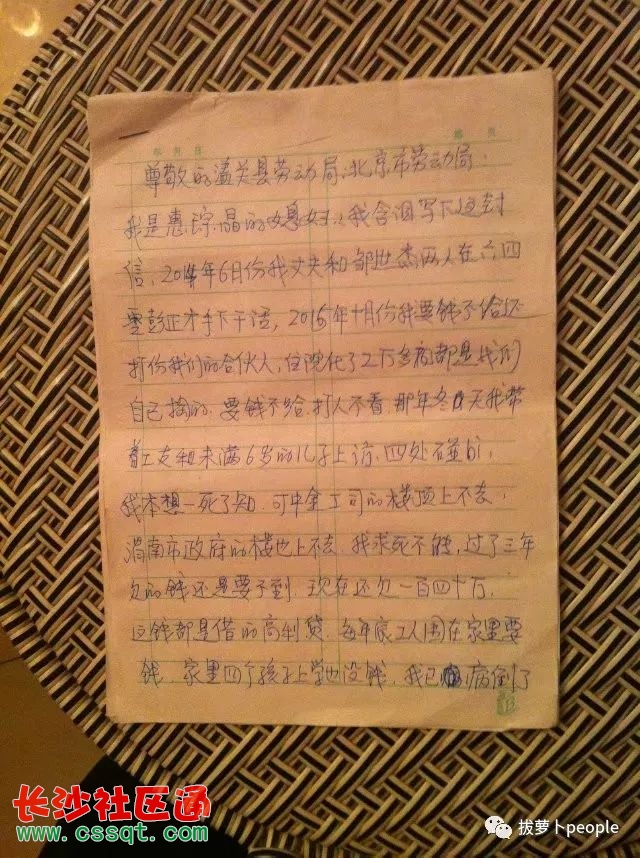 尊敬的潼关县劳动局、北京市劳动局:
我是惠琮晶的媳妇,我含泪写下这封
信,2014年6月份我丈夫和邹世杰两人在六四
零彭正才手下干活,2015年十月份我要钱不给还
打份我们的合伙人,住院化了2万多内都是我们
自己掏的,要钱不给,打人不看,那年冬天我带
着工友和未满6岁的儿子上访,四处碰壁,
我本想一死了知,可中金工司的楼顶上不去,
渭南市政府的楼也上不去,我求死不能,过了三年
欠的钱还是要不到,现在还欠一百四十万,
这钱都是借的高利贷,每年家工人围在家里要
钱,家里四个孩子上学也没钱,我已病倒了
长沙社区通
www.cssqt.com
拔萝卜people